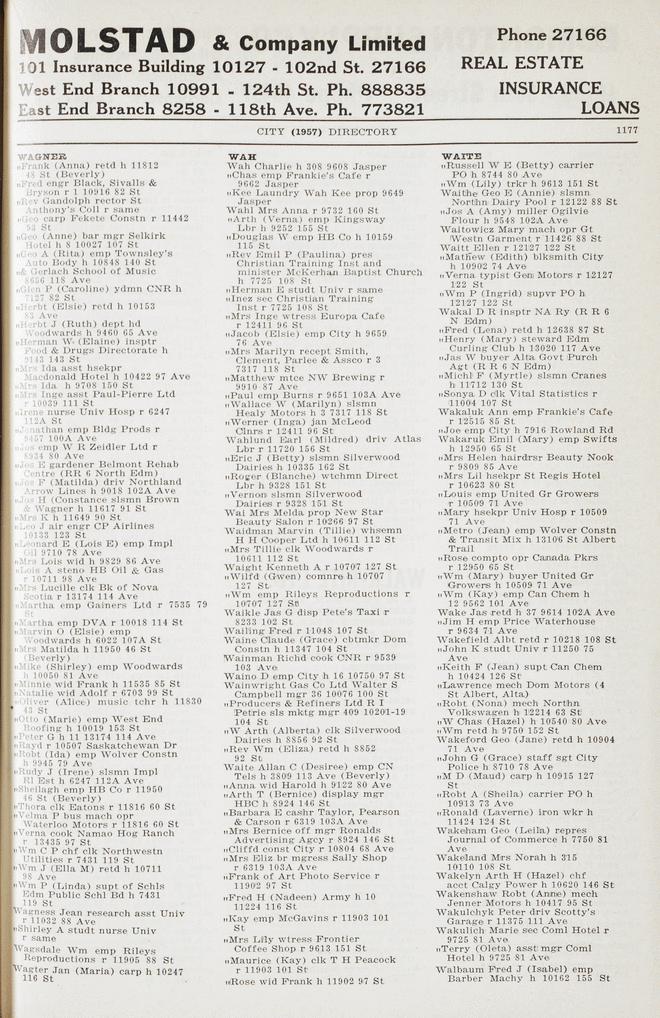 MOLSTAD & Company Limited
101 Insurance Building 10127 - 102nd St. 27166
West End Branch 10991 - 124th St. Ph. 888835
East End Branch 8258 - 118th Ave. Ph. 773821
Phone 27166
REAL ESTATE
INSURANCE
LOANS
CITY (1957) DIRECTORY 1177
WAGNER
„Frank (Anna) retd h 11812
48 St (Beverly)
„Fred engr Black, Sivalls &
Bryson r 1 10916 82 St
„Rev Gandolph rector St
Anthony's Coll r same
„Geo carp Fekete Constn r 11442
93 St
„Geo (Anne) bar mgr Selkirk
Hotel h 8 10027 107 St
„Geo A (Rita) emp Townsley's
Auto Body h 10848 140 St
„& Gerlach School of Music
8656 118 Ave
„Glen P (Caroline) ydmn CNR h
7127 82 St
„Herbt (Elsie) retd h 10153
83 Ave
„Herbt J (Ruth) dept hd
Woodwards h 9460 65 Ave
„Herman W (Elaine) insptr
Food & Drugs Directorate h
9143 143 St
„Mrs Ida asst hsekpr
Macdonald Hotel h 10422 97 Ave
„Mrs Ida h 9708 150 St
„Mrs Inge asst Paul-Pierre Ltd
r 10039 111 St
„Irene nurse Univ Hosp r 6247
112A St
„Jonathan emp Bldg Prods r
9457 100A Ave
„Jos emp W R Zeidler Ltd r
8934 80 Ave
„Jos E gardener Belmont Rehab
Centre (RR 6 North Edm)
„Jos F (Matilda) driv Northland
Arrow Lines h 9018 102A Ave
„Jos H (Constance slsmn Brown
& Wagner h 11617 91 St
„Mrs K h 11649 90 St
„Leo J air engr CP Airlines
10133 123 St
„Leonard E (Lois E) emp Impl
Oil 9710 78 Ave
„Mrs Lois wid h 9829 86 Ave
„Lois A steno HB Oil & Gas
r 10711 98 Ave
„Mrs Lucille clk Bk of Nova
Scotia r 13174 114 Ave
„Martha emp Gainers Ltd r 7535 79
St
„Martha emp DVA r 10018 114 St
„Marvin O (Elsie) emp
Woodwards h 6022 107A St
„Mrs Matilda h 11950 46 St
(Beverly)
„Mike (Shirley) emp Woodwards
h 10050 81 Ave
„Minnie wid Frank h 11535 85 St
„Natalie wid Adolf r 6703 99 St
„Oliver (Alice) music tchr h 11830
43 St
„Otto (Marie) emp West End
Roofing h 10019 153 St
„Peter G h 11 13174 114 Ave
„Rayd r 10507 Saskatchewan Dr
„Robt (Ida) emp Wolver Constn
h 9945 79 Ave
„Rudy J (Irene) slsmn Impl
Rl Est h 6247 112A Ave
„Sheilagh emp HB Co r 11950
46 St (Beverly)
„Thora clk Eatons r 11816 60 St
„Velma P bus mach opr
Waterloo Motors r 11816 60 St
„Verna cook Namao Hog Ranch
r 13435 97 St
„Wm C P chf clk Northwestn
Utilities r 7431 119 St
„Wm J (Ella M) retd h 10711
98 Ave
„Wm P (Linda) supt of Schls
Edm Public Schl Bd h 7431
119 St
Wagness Jean research asst Univ
r 11032 88 Ave
„Shirley A studt nurse Univ
r same
Wagsdale Wm emp Rileys
Reproductions r 11905 88 St
Wagter Jan (Maria) carp h 10247
116 St
WAH
Wah Charlie h 308 9608 Jasper
„Chas emp Frankie's Cafe r
9662 Jasper
„Kee Laundry Wah Kee prop 9649
Jasper
Wahl Mrs Anna r 9732 160 St
„Arth (Verna) emp Kingsway
Lbr h 9252 155 St
„Douglas W emp HB Co h 10159
115 St
„Rev Emil P (Paulina) pres
Christian Training Inst and
minister McKerhan Baptist Church
h 7725 108 St
„Herman E studt Univ r same
„Inez sec Christian Training
Inst r 7725 108 St
„Mrs Inge wtress Europa Cafe
r 12411 96 St
„Jacob (Elsie) emp City h 9659
76 Ave
„Mrs Marilyn recept Smith,
Clement, Parlee & Assco r 3
7317 118 St
„Matthew mtce NW Brewing r
9910 87 Ave
„Paul emp Burns r 9651 103A Ave
„Wallace W (Marilyn) slsmn
Healy Motors h 3 7317 118 St
„Werner (Inga) jan McLeod
Clnrs r 12411 96 St
Wahlund Earl (Mildred) driv Atlas
Lbr r 11720 156 St
„Eric J (Betty) slsmn Silverwood
Dairies h 10335 162 St
„Roger (Blanche) wtchmn Direct
Lbr h 9328 151 St
„Vernon slsmn Silverwood
Dairies r 9328 151 St
Wai Mrs Melda prop New Star
Beauty Salon r 10266 97 St
Waidman Marvin (Tillie) whsemn
H H Cooper Ltd h 10611 112 St
„Mrs Tillie clk Woodwards r
10611 112 St
Waight Kenneth A r 10707 127 St
„Wilfd (Gwen) comnre h 10707
127 St
„Wm emp Rileys Reproductions r
10707 127 St
Waikle Jas G disp Pete's Taxi r
8233 102 St
Wailing Fred r 11048 107 St
Waine Claude (Grace) cbtmkr Dom
Constn h 11347 104 St
Wainman Richd cook CNR r 9539
103 Ave
Waino D emp City h 16 10750 97 St
Wainwright Gas Co Ltd Walter S
Campbell mgr 36 10076 100 St
„Producers & Refiners Ltd R I
Petrie sls mktg mgr 409 10201-19
104 St
„W Arth (Alberta) clk Silverwood
Dairies h 8856 92 St
„Rev Wm (Eliza) retd h 8852
92 St
Waite Allan C (Desiree) emp CN
Tels h 3809 113 Ave (Beverly)
„Anna wid Harold h 9122 80 Ave
„Arth T (Bernice) display mgr
HBC h 8924 146 St
„Barbara E cashr Taylor, Pearson
& Carson r 6319 103A Ave
„Mrs Bernice off mgr Ronalds
Advertising Agcy r 8924 146 St
„Cliffd const City r 10804 68 Ave
„Mrs Eliz br mgress Sally Shop
r 6319 103A Ave
„Frank of Art Photo Service r
11902 97 St
„Fred H (Nadeen) Army h 10
11224 116 St
„Kay emp McGavins r 11903 101
St
„Mrs Lily wtress Frontier
Coffee Shop r 9613 151 St
„Maurice (Kay) clk T H Peacock
r 11903 101 St
„Rose wid Frank h 11902 97 St
WAITE
„Russell W E (Betty) carrier
PO h 8744 80 Ave
„Wm (Lily) trkr h 9613 151 St
Waithe Geo E (Annie) slsmn
Northn Dairy Pool r 12122 88 St
„Jos A (Amy) miller Ogilvie
Flour h 9548 102A Ave
Waitowicz Mary mach opr Gt
Westn Garment r 11426 88 St
Waitt Ellen r 12127 122 St
„Mathew (Edith) blksmith City
h 10902 74 Ave
„Verna typist Gen Motors r 12127
122 St
„Wm P (Ingrid) supvr PO h
12127 122 St
Wakal D R insptr NA Ry (R R 6
N Edm)
„Fred (Lena) retd h 12638 87 St
„Henry (Mary) steward Edm
Curling Club h 13020 117 Ave
„Jas W buyer Alta Govt Purch
Agt (R R 6 N Edm)
„Michl F (Myrtle) slsmn Cranes
h 11712 130 St
„Sonya D clk Vital Statistics r
11004 107 St
Wakaluk Ann emp Frankie's Cafe
r 12515 85 St
„Joe emp City h 7916 Rowland Rd
Wakaruk Emil (Mary) emp Swifts
h 12950 65 St
„Mrs Helen hairdrsr Beauty Nook
r 9809 85 Ave
„Mrs Lil hsekpr St Regis Hotel
r 10623 80 St
„Louis emp United Gr Growers
r 10509 71 Ave
„Mary hsekpr Univ Hosp r 10509
71 Ave
„Metro (Jean) emp Wolver Constn
& Transit Mix h 13106 St Albert
Trail
„Rose compto opr Canada Pkrs
r 12950 65 St
„Wm (Mary) buyer United Gr
Growers h 10509 71 Ave
„Wm (Kay) emp Can Chem h
12 9562 101 Ave
Wake Jas retd h 37 9614 102A Ave
„Jim H emp Price Waterhouse
r 9634 71 Ave
Wakefield Albt retd r 10218 108 St
„John K studt Univ r 11250 75
Ave
„Keith F (Jean) supt Can Chem
h 10424 126 St
„Lawrence mech Dom Motors (4
St Albert, Alta)
„Robt (Nona) mech Northn
Volkswagen h 12214 63 St
„W Chas (Hazel) h 10540 80 Ave
„Wm retd h 9750 152 St
Wakeford Geo (Jane) retd h 10904
71 Ave
„John G (Grace) staff sgt City
Police h 8710 78 Ave
„M D (Maud) carp h 10915 127
St
„Robt A (Sheila) carrier PO h
10913 73 Ave
„Ronald (Laverne) iron wkr h
11424 124 St
Wakeham Geo (Leila) repres
Journal of Commerce h 7750 81
Ave
Wakeland Mrs Norah h 315
10110 108 St
Wakelyn Arth H (Hazel) chf
acct Calgy Power h 10620 146 St
Wakenshaw Robt (Anne) mech
Jenner Motors h 10417 95 St
Wakulchyk Peter driv Scotty's
Garage r 11375 111 Ave
Wakulich Marie sec Coml Hotel r
9725 81 Ave
„Terry (Oleta) asst mgr Coml
Hotel h 9725 81 Ave
Walbaum Fred J (Isabel) emp
Barber Machy h 10162 155 St